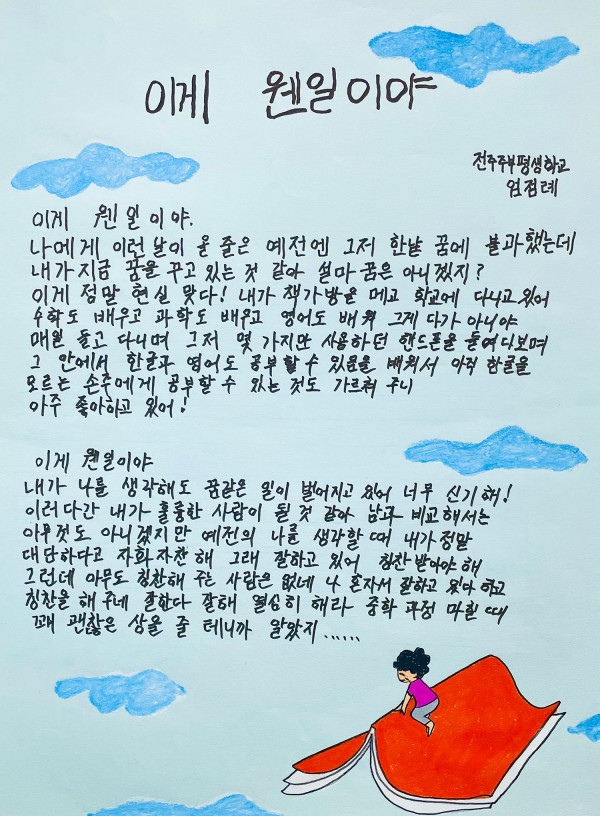 이게 웬일이야
전주주부평생학교
엄점례
이게 웬일이야.
나에게 이런날이 올 줄은 예전엔 그저 한낱 꿈에 불과했는데
내가지금 꿈을 꾸고 있는 것 같아 설마 꿈은 아니겠지?
이게 정말 현실 맞다! 내가 책가방을 메고 학교에 다니고있어
수학도 배우고 과학도 배우고 영어도 배워 그게 다가 아니야
매일 들고 다니며 그저 몇 가지만 사용하던 핸드폰을 들여다보며
그 안에서 한글과 영어도 공부할 수 있음을 배워서 아직 한글을
모르는 손주에게 공부할 수 있는 것도 가르쳐 주니
아주 좋아하고 있어!
이게 웬일이야
내가 나를 생각해도 꿈같은 일이 벌어지고 있어 너무 신기해!
이러다간 내가 훌륭한 사람이 될 것 같아 남과 비교해서는
아무것도 아니겠지만 예전의 나를 생각할 때 내가정말
대단하다고 자화자찬 해 그래 잘하고 있어 칭찬 받아야 해
그런데 아무도 칭찬해 주는 사람은 없네 나 혼자서 잘하고 있다 하고
칭찬을 해 주네 잘한다 잘해 열심히 해라 중학 과정 마칠 때
꽤 괜찮은 상을 줄 테니까 알았지......